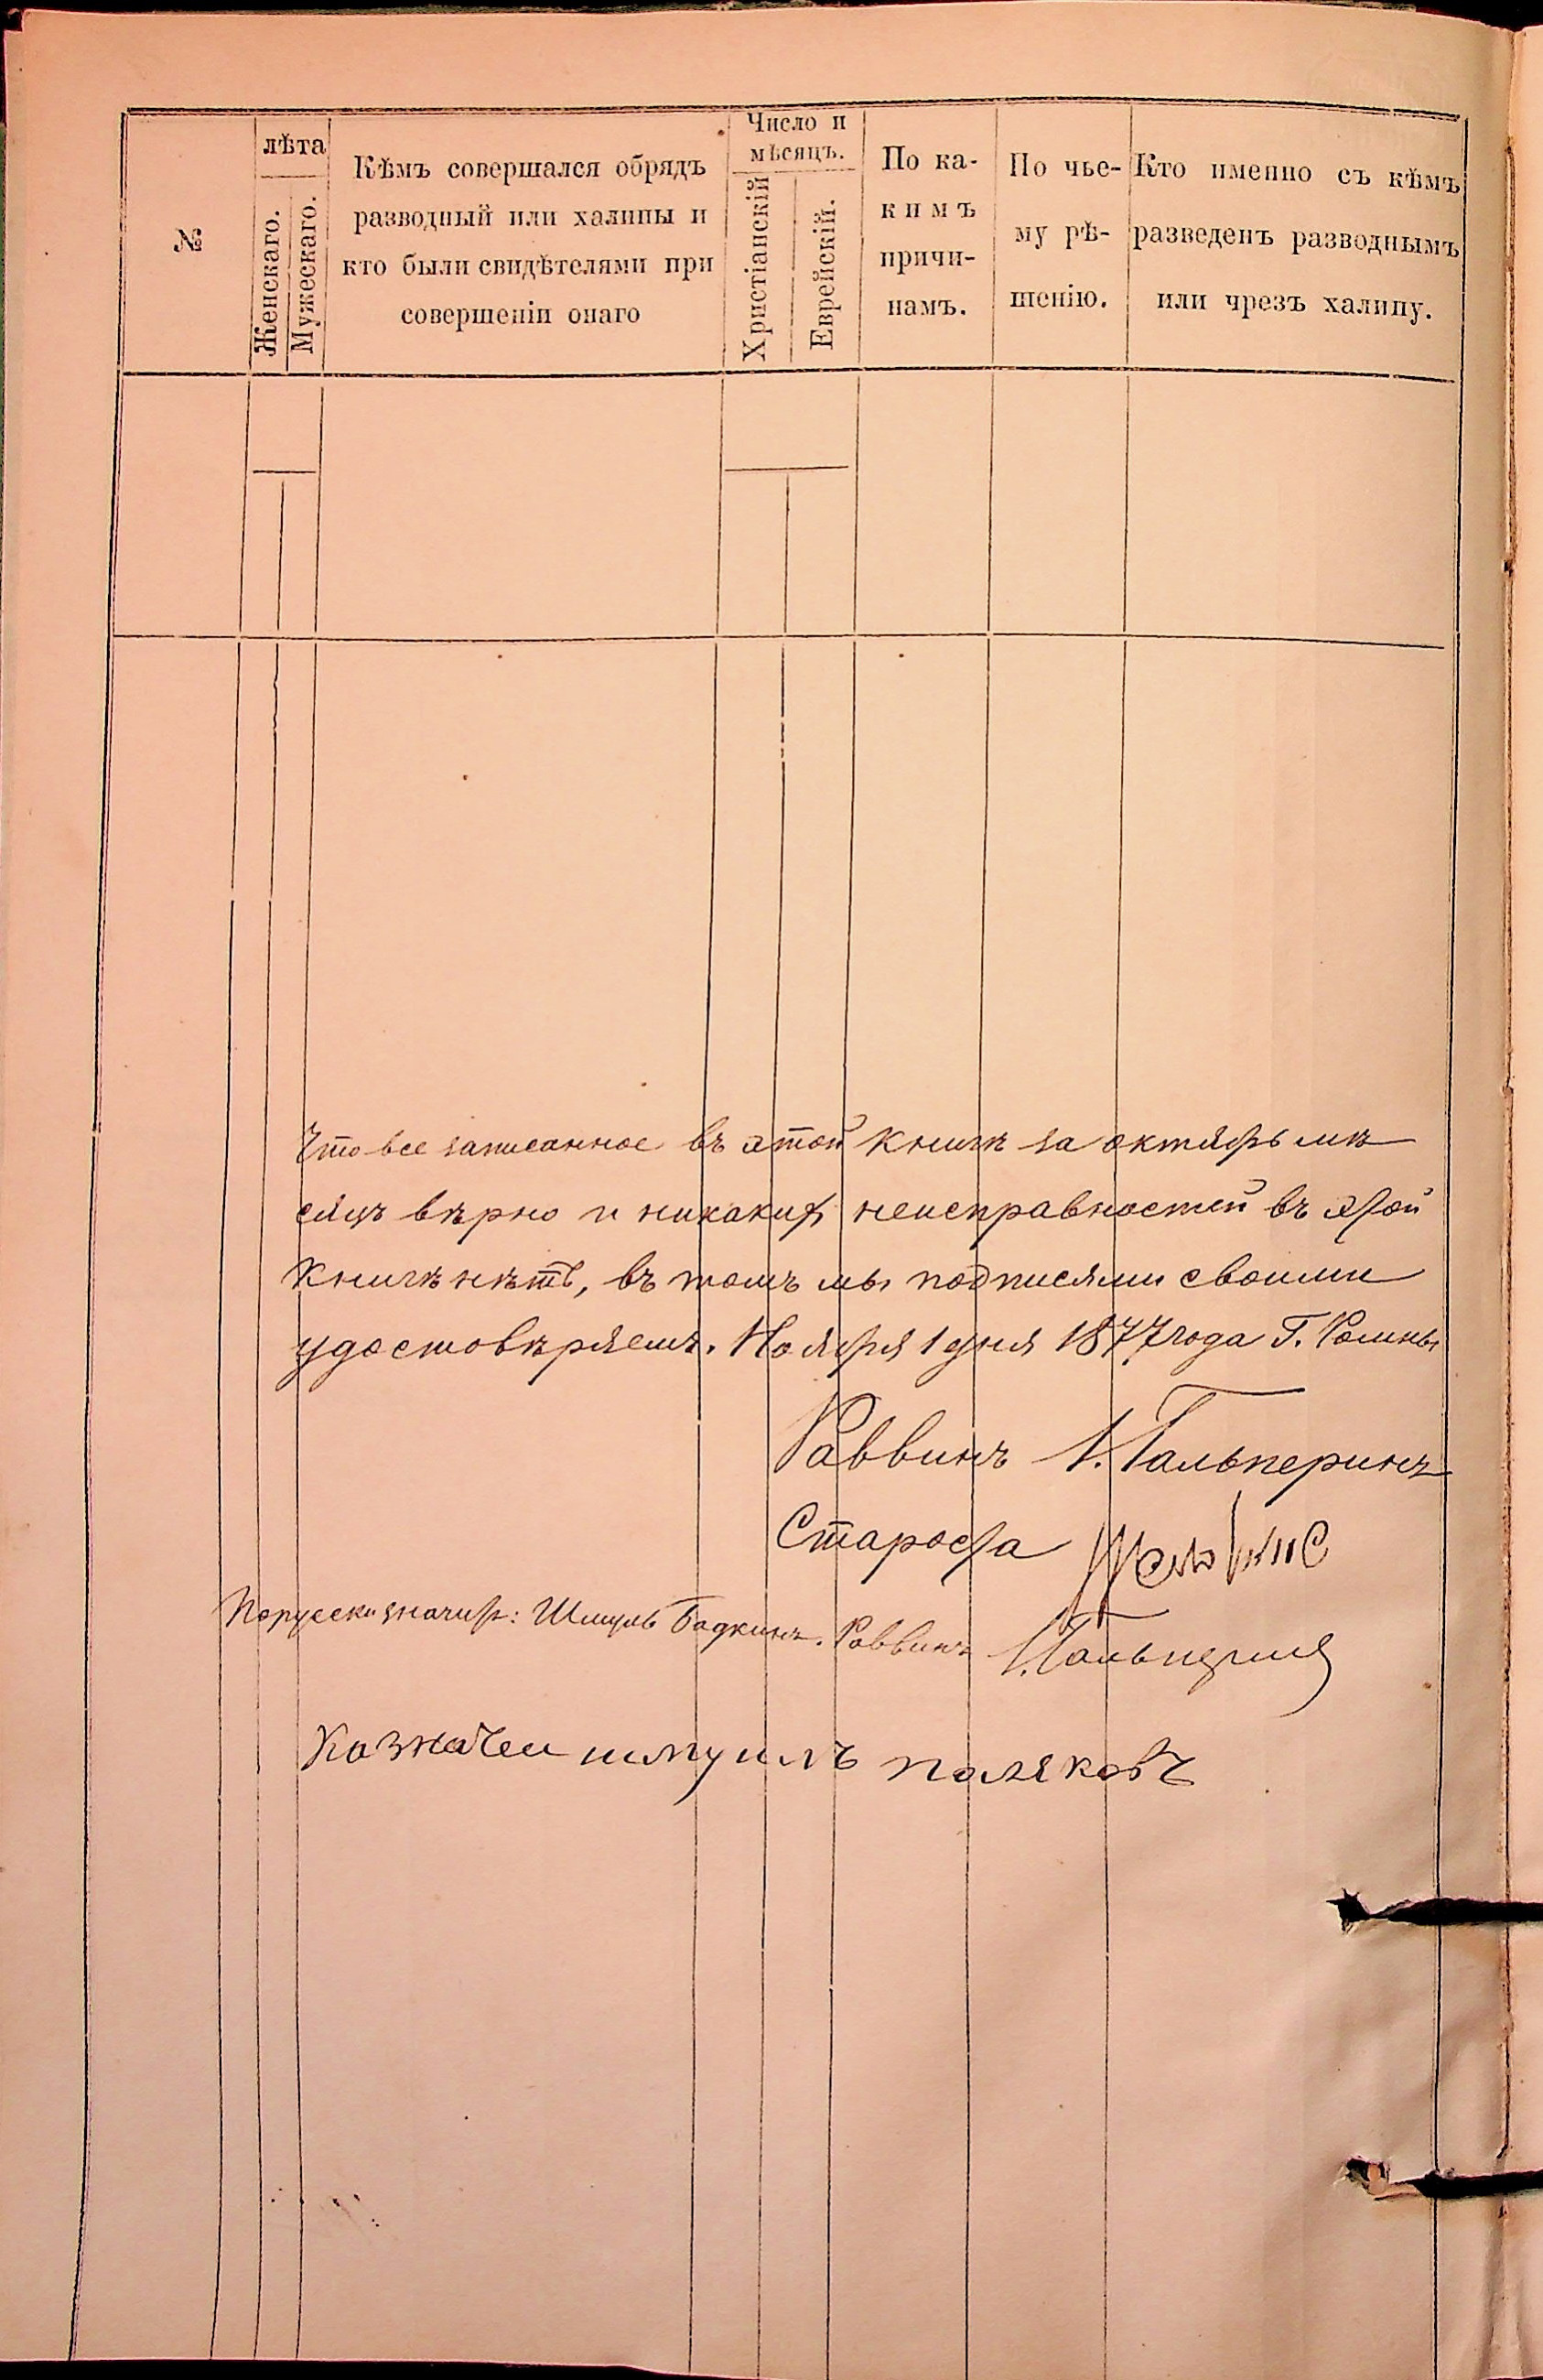 №
лѣта
Женскаго.
Мужескаго.
Кѣмъ совершался обрядъ
разводный или халицы и
кто были свидѣтелями при
совершеніи онаго
Число и
мѣсяцъ.
Христіанскій
Еврейскій.
По ка-
кимъ
причи-
намъ.
По чье-
му рѣ-
шенію.
Кто именно съ кѣмъ
разведенъ разводнымъ
или чрезъ халицу.
Что все записанное въ этой книгѣ за октябрь мѣ
сяцъ вѣрно и никакихъ неисправностей въ этой
книгѣ нѣтъ, въ томъ мы подписями своими
удостовѣряемъ. Ноября 1 дня 1877 года Г. Ромны
Раввинъ І. Гальперинъ
Староста
Порусски значитъ: Шмуль Бадкинъ. Раввинъ І. Гальперинъ
Казначеи шмуилъ поляковъ